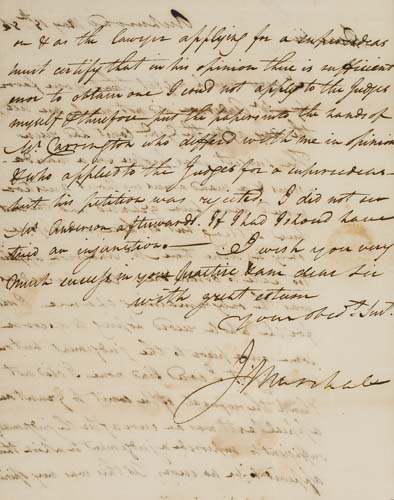 or & as the lawyer applying for a supersedeas
must certify that in his opinion there is sufficient
error to obtain one I could not apply to the Judges
myself & therefore put the papers into the hands of
Mr. Carrington who differd with me in opinion
& who applied to the Judges for a supersedeas
but his petition was rejected. I did not see
Mr. Anderson afterwards. If I had I should have
tried an injunction. — I wish you very
much success in your practice & am dear Sir
with great esteem
your obedt. Servt.
J Marshall